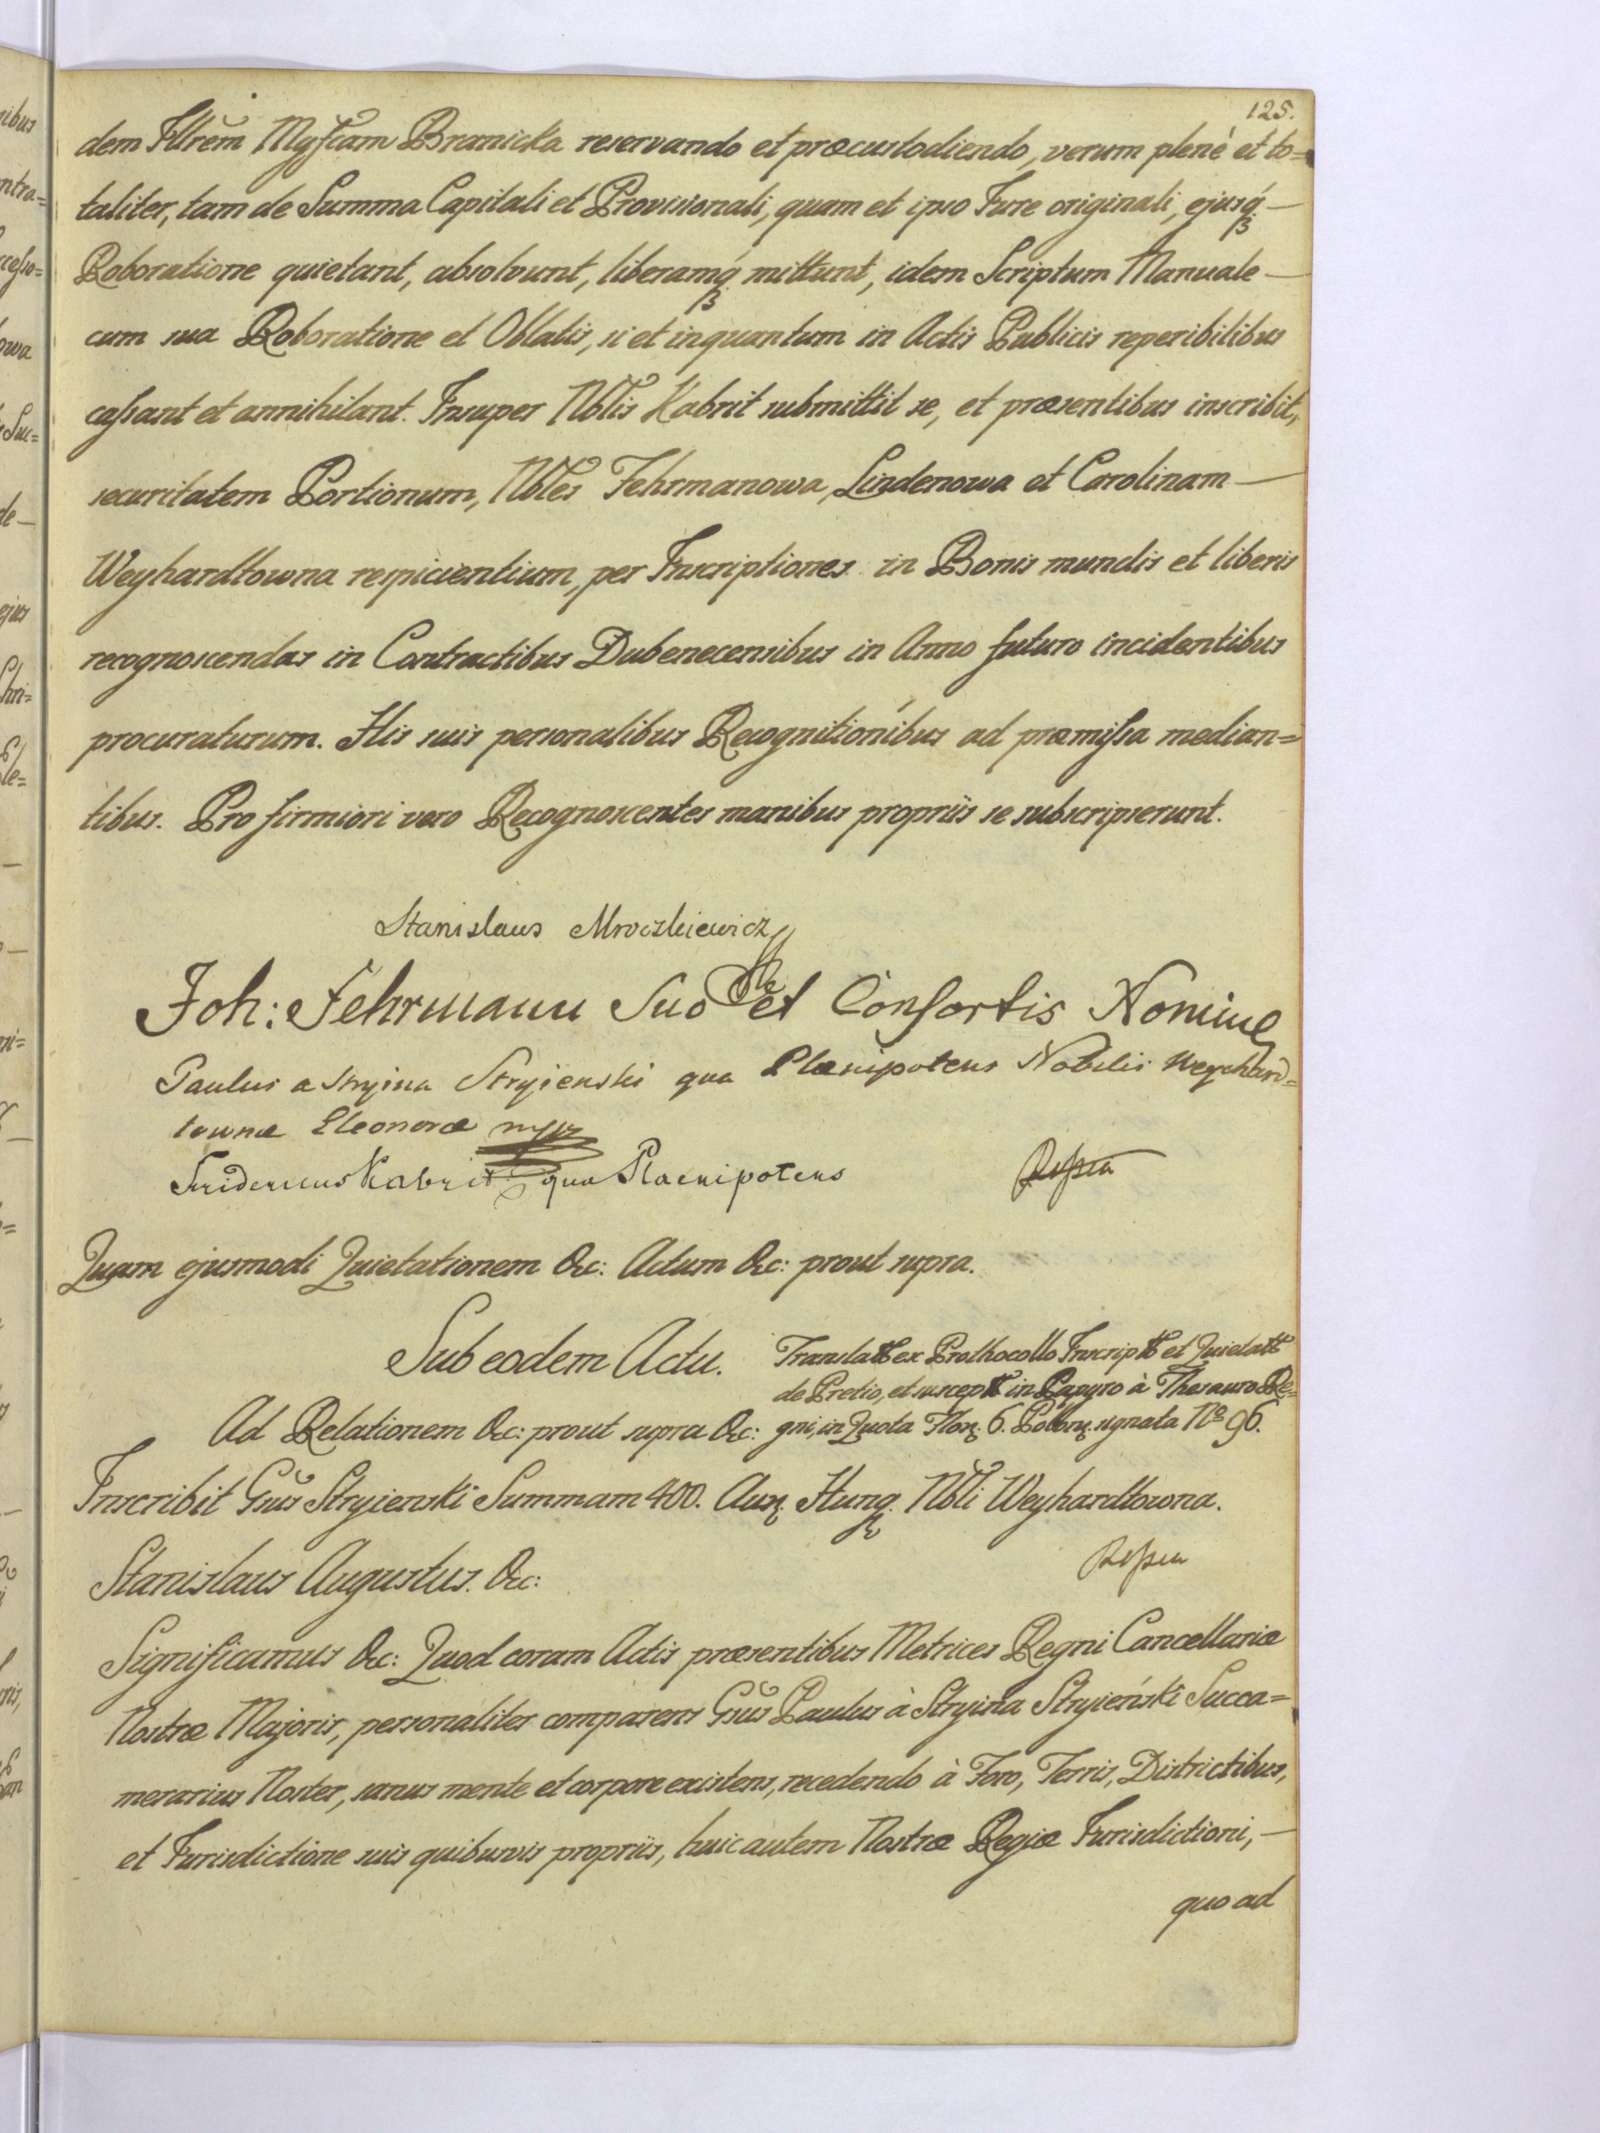 125.
dem Illrem Mgficam Branicka reservando et præcustodiendo, verum plenè et to=
taliter, tam de Summa Capitali et Provisionali, quam et ipso Jure originali, ejusq́
Roboratione quietant, absolvunt, liberamq́ mittunt, idem Scriptum Manuale
cum sua Roboratione et Oblatis, si et inquantum in Actis Publicis reperibilibus
cassant et annihilant. Insuper Nblis Kabrit submittit se, et præsentibus inscribit,
securitatem Portionum, Nbles Fehrmanowa, Lindenowa et Carolinam
Weyhardtowna respicientium, per Inscriptiones in Bonis mundis et liberis
recognoscendas in Contractibus Dubenecensibus in Anno futuro incidentibus
procuraturum. His suis personalibus Recognitionibus ad præmissa median=
tibus. Pro firmiori vero Recognoscentes manibus propriis se subscripserunt.
Stanislaus Mroczkiewicz
Joh: Fehrmann Suo et Consortis Nomine
Paulus a Stryina Stryienski qua Plænipotens Nobilis Weychard=
townæ Eleonoræ mppr
Fridericus Kabrit qua Plaenipotens
Quam ejusmodi Quietationem &c: Actum &c: prout supra.
Sub eodem Actu.
Translatt ex Prothocollo Inscriptt et Quietatt
de Pretio, et susceptt in Papyro à Thesauro Re=
gni, in Quota Flor. 6. Polon. signata No 96.
Ad Relationem &c: prout supra &c:
Inscribit Gsus Stryienski Summam 400. Aur. Hung. Nbli Weyhardtowna.
Stanislaus Augustus. &c:
Significamus &c: Quod coram Actis præsentibus Metrices Regni Cancellariæ
Nostræ Majoris, personaliter comparens Gsus Paulus à Stryina Stryieński Succa=
merarius Noster, sanus mente et corpore existens, recedendo à Foro, Terris, Districtibus,
et Jurisdictione suis quibusvis propriis, huic autem Nostræ Regiæ Jurisdictioni,
quo ad